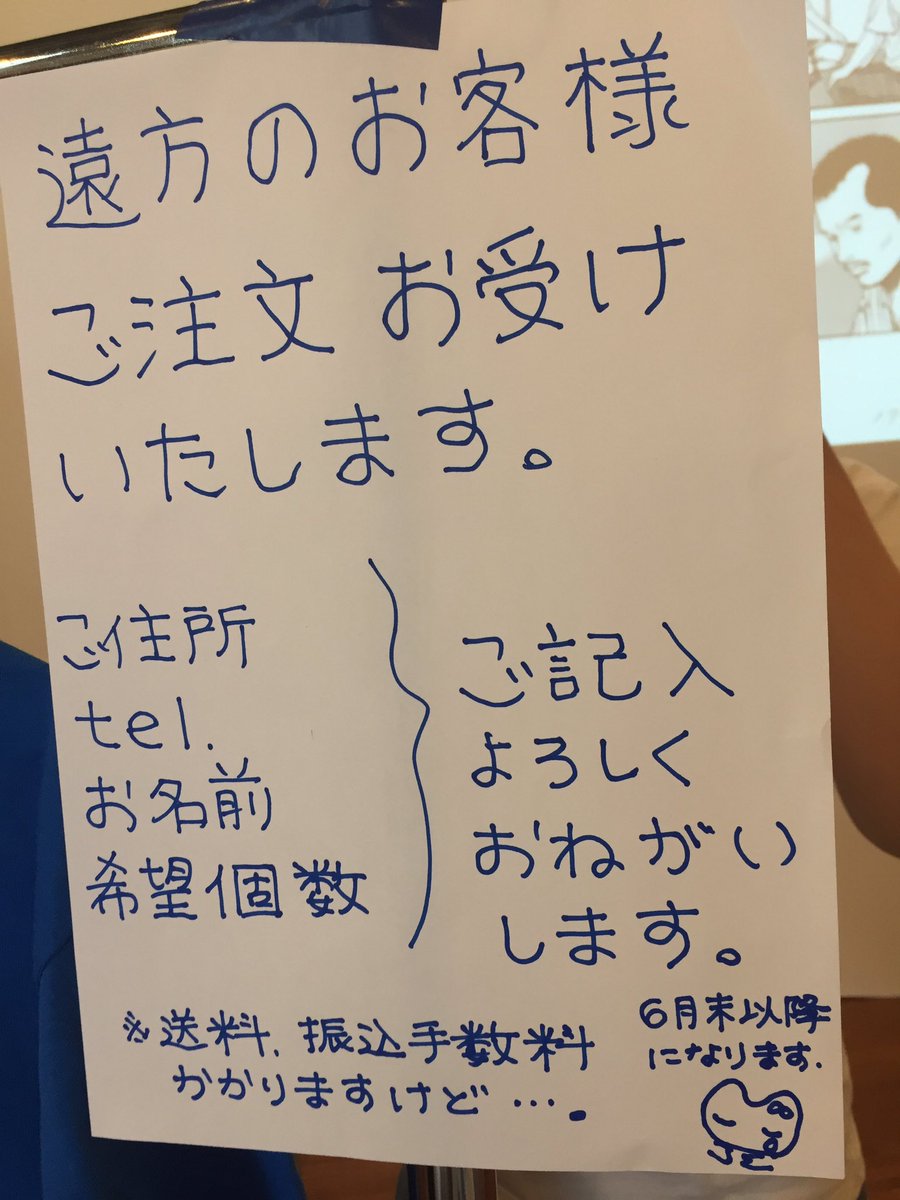 遠方のお客様
ご注文 お受け
いたします。
ご住所
tel.
お名前
希望個数
ご記入
よろしく
おねがい
します。
※送料、振込手数料
かかりますけど…。
6月末以降
になります.